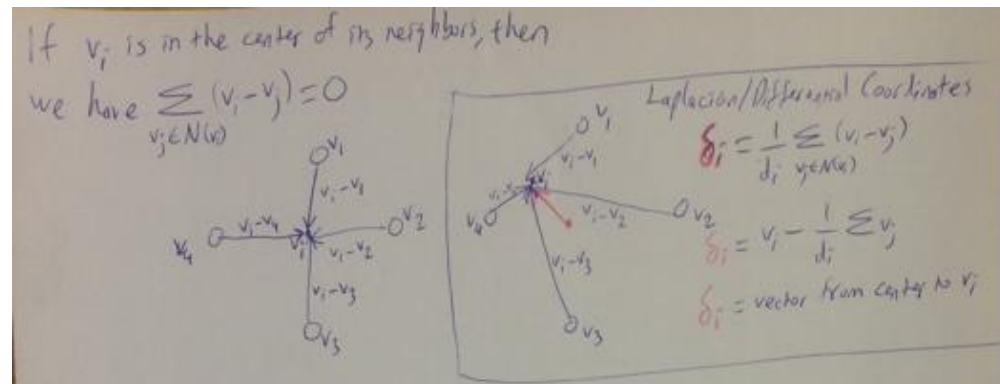 If vᵢ is in the center of its neighbors, then
we have Σ (vᵢ-vⱼ)=0
vⱼ∈N(vᵢ)
v₁
vᵢ-v₁
vᵢ-v₄
v₂
v₄
vᵢ
vᵢ-v₂
vᵢ-v₃
v₃
Laplacian/Differential Coordinates
δᵢ = 1/dᵢ Σ (vᵢ-vⱼ)
vⱼ∈N(vᵢ)
δᵢ = vᵢ - 1/dᵢ Σ vⱼ
δᵢ = vector from center to vᵢ
v₁
vᵢ-v₁
vᵢ-v₄
vᵢ
v₄
vᵢ-v₂
v₂
vᵢ-v₃
v₃